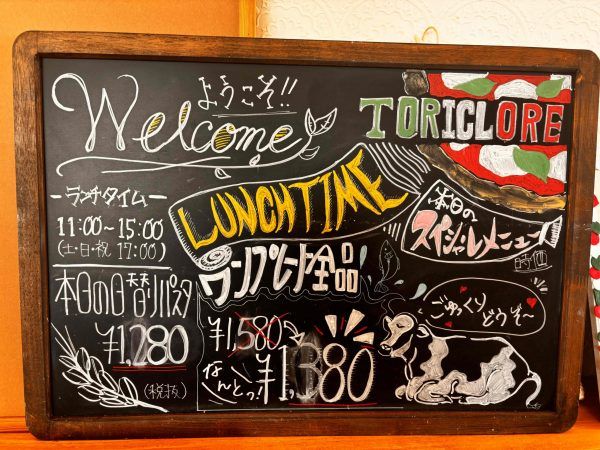 ようこそ!!
Welcome
TORICLORE
ーランチタイムー
11:00～15:00
(土・日・祝 17:00)
LUNCH TIME
本日の
スペシャルメニュー
ワンプレート全品
本日の日替りパスタ
¥1,280
(税抜)
¥1,580
なんとっ!
¥1,380
ごゆっくり
どうぞ～